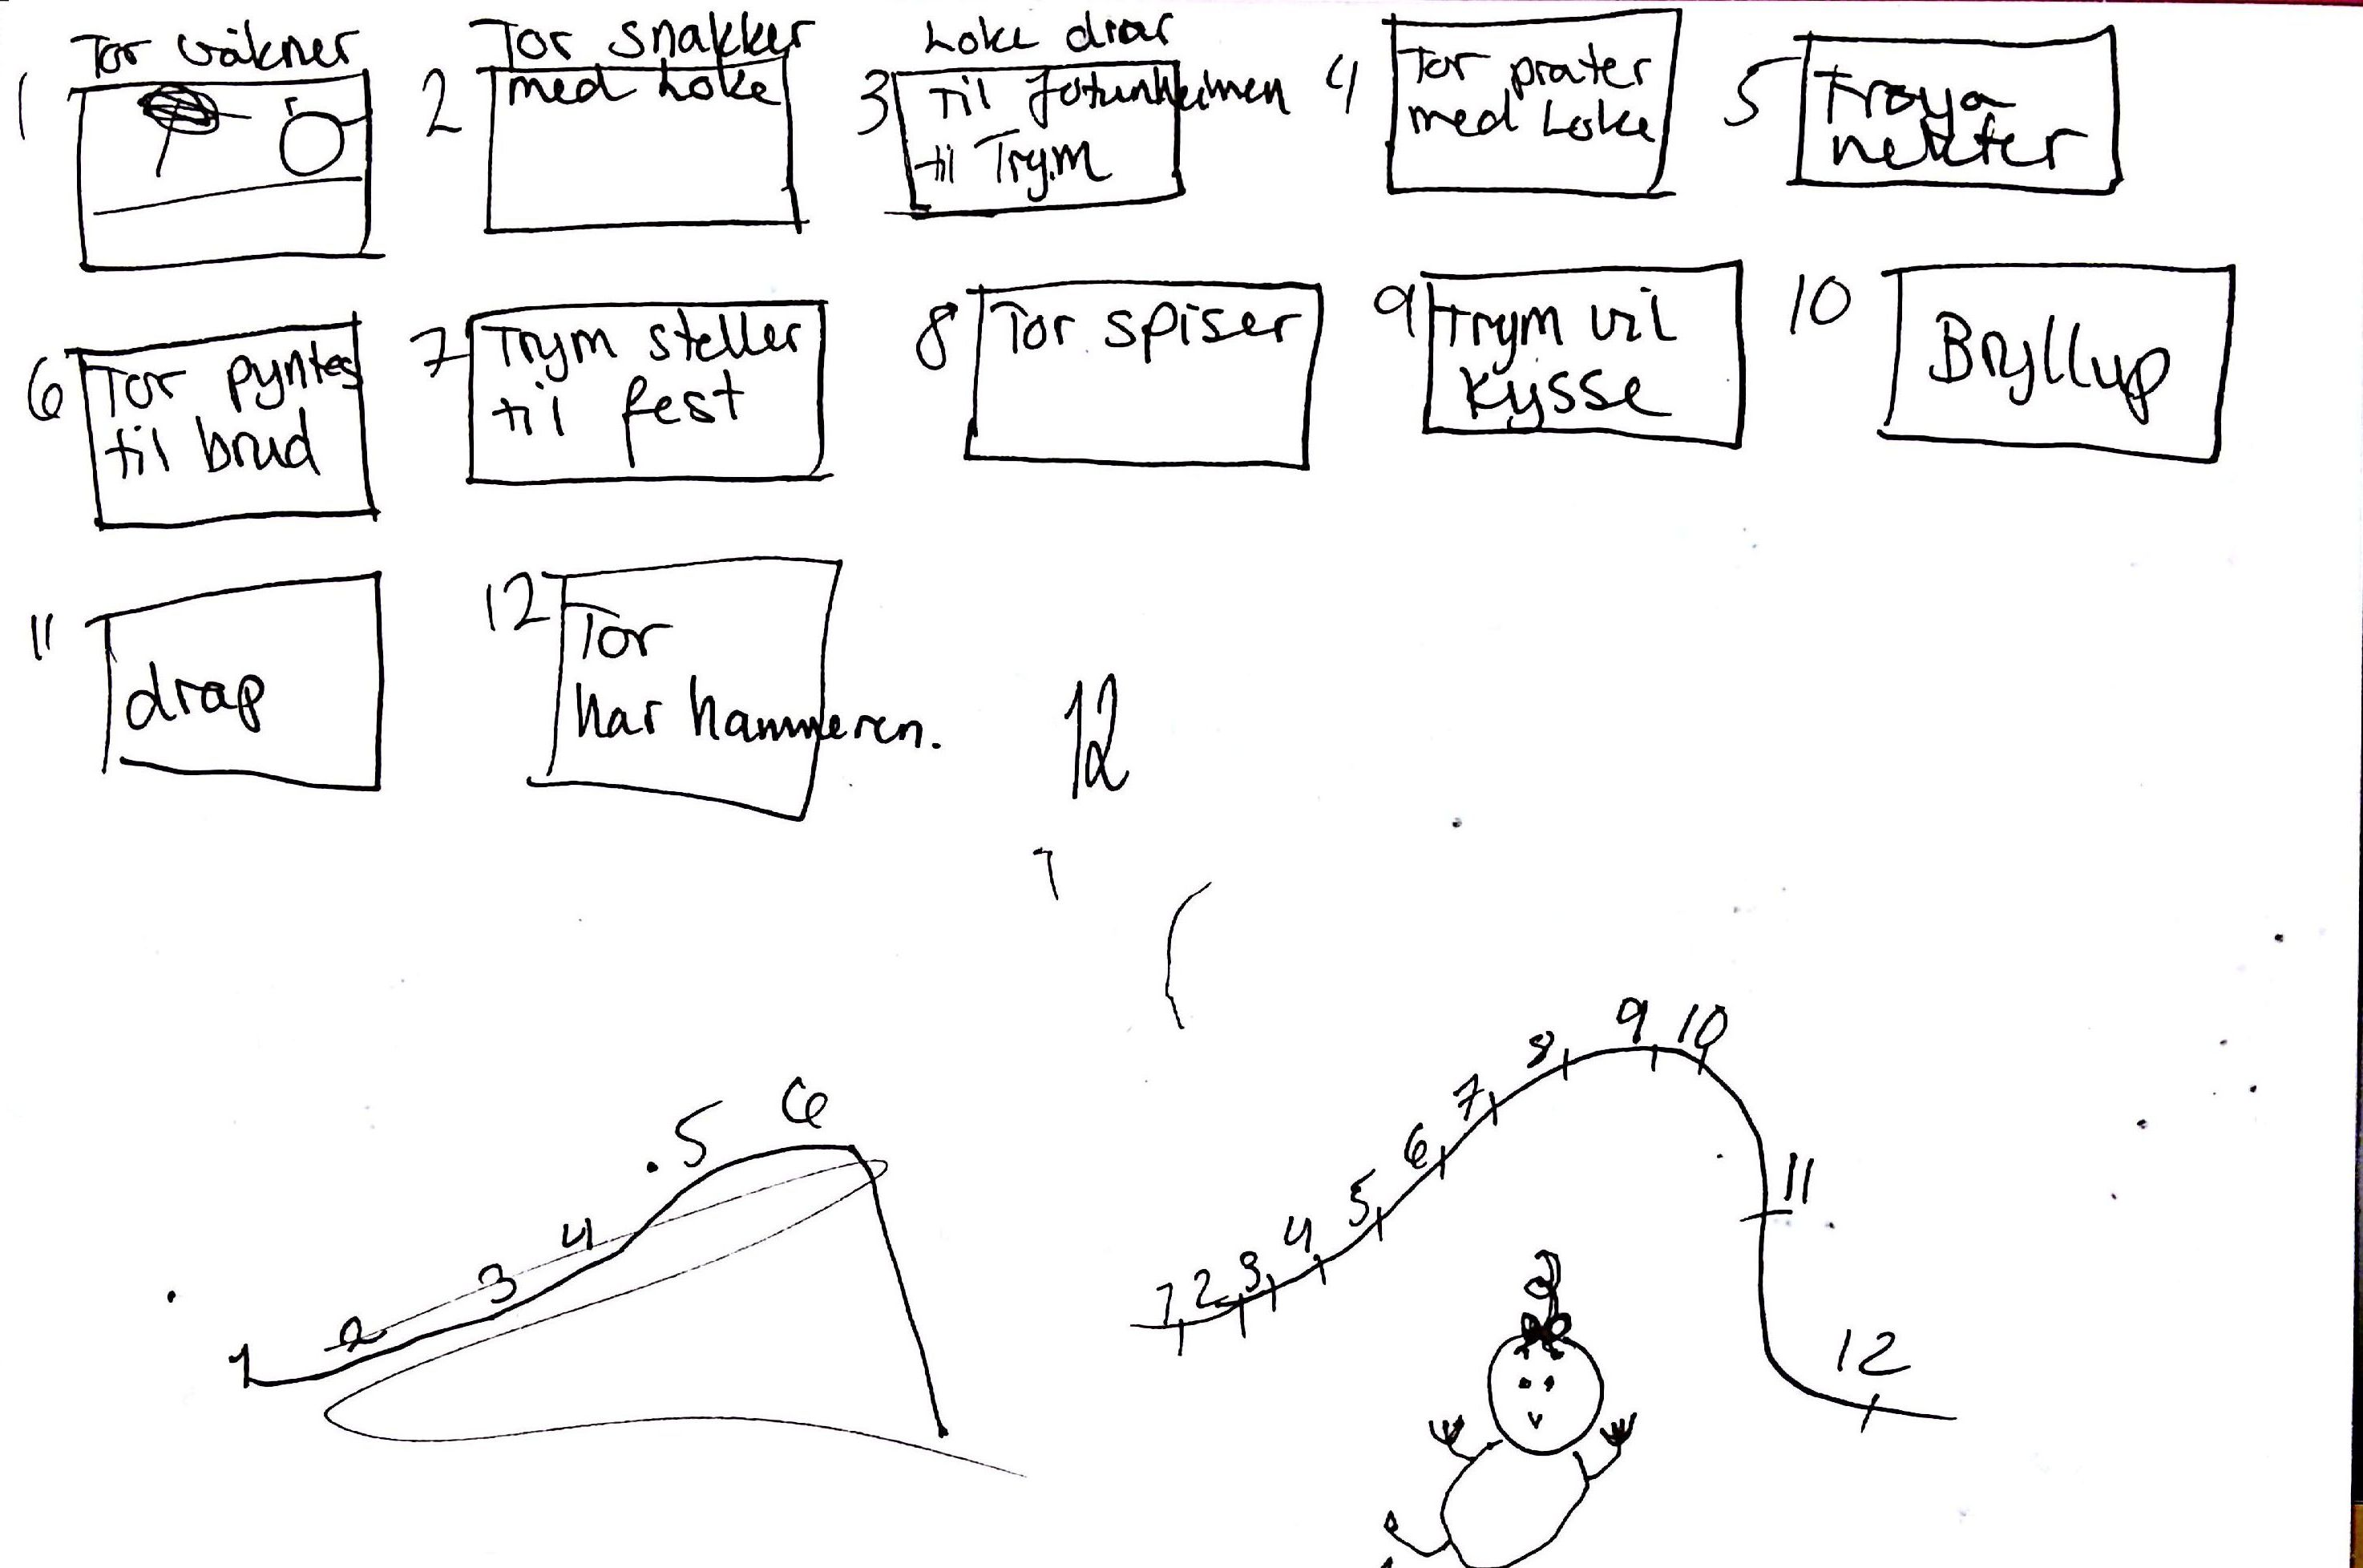 1 Tor våkner
2 Tor snakker
med Loke
3 Loke drar
til Jotunheimen
til Trym
4 Tor prater
med Loke
5 Frøya
nekter
6 Tor pyntes
til brud
7 Trym steller
til fest
8 Tor spiser
9 Trym vil
kysse
10 Bryllup
11 drap
12 Tor
har hammeren.
12
1 2 3 4 5 6
1 2 3 4 5 6 7 8 9 10 11 12